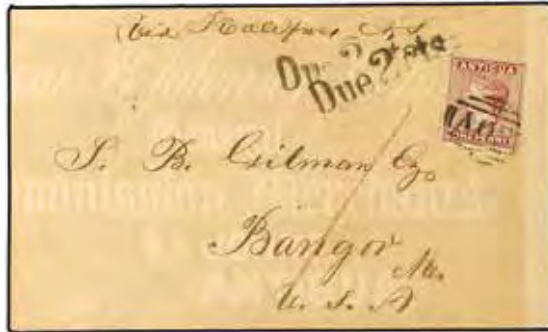 Via Halifax N.S.
Due 2 cts
Due 2 cts
ANTIGUA
A02
ONE PENNY
J. B. Gilman Esq
Bangor
Me.
U. S. A